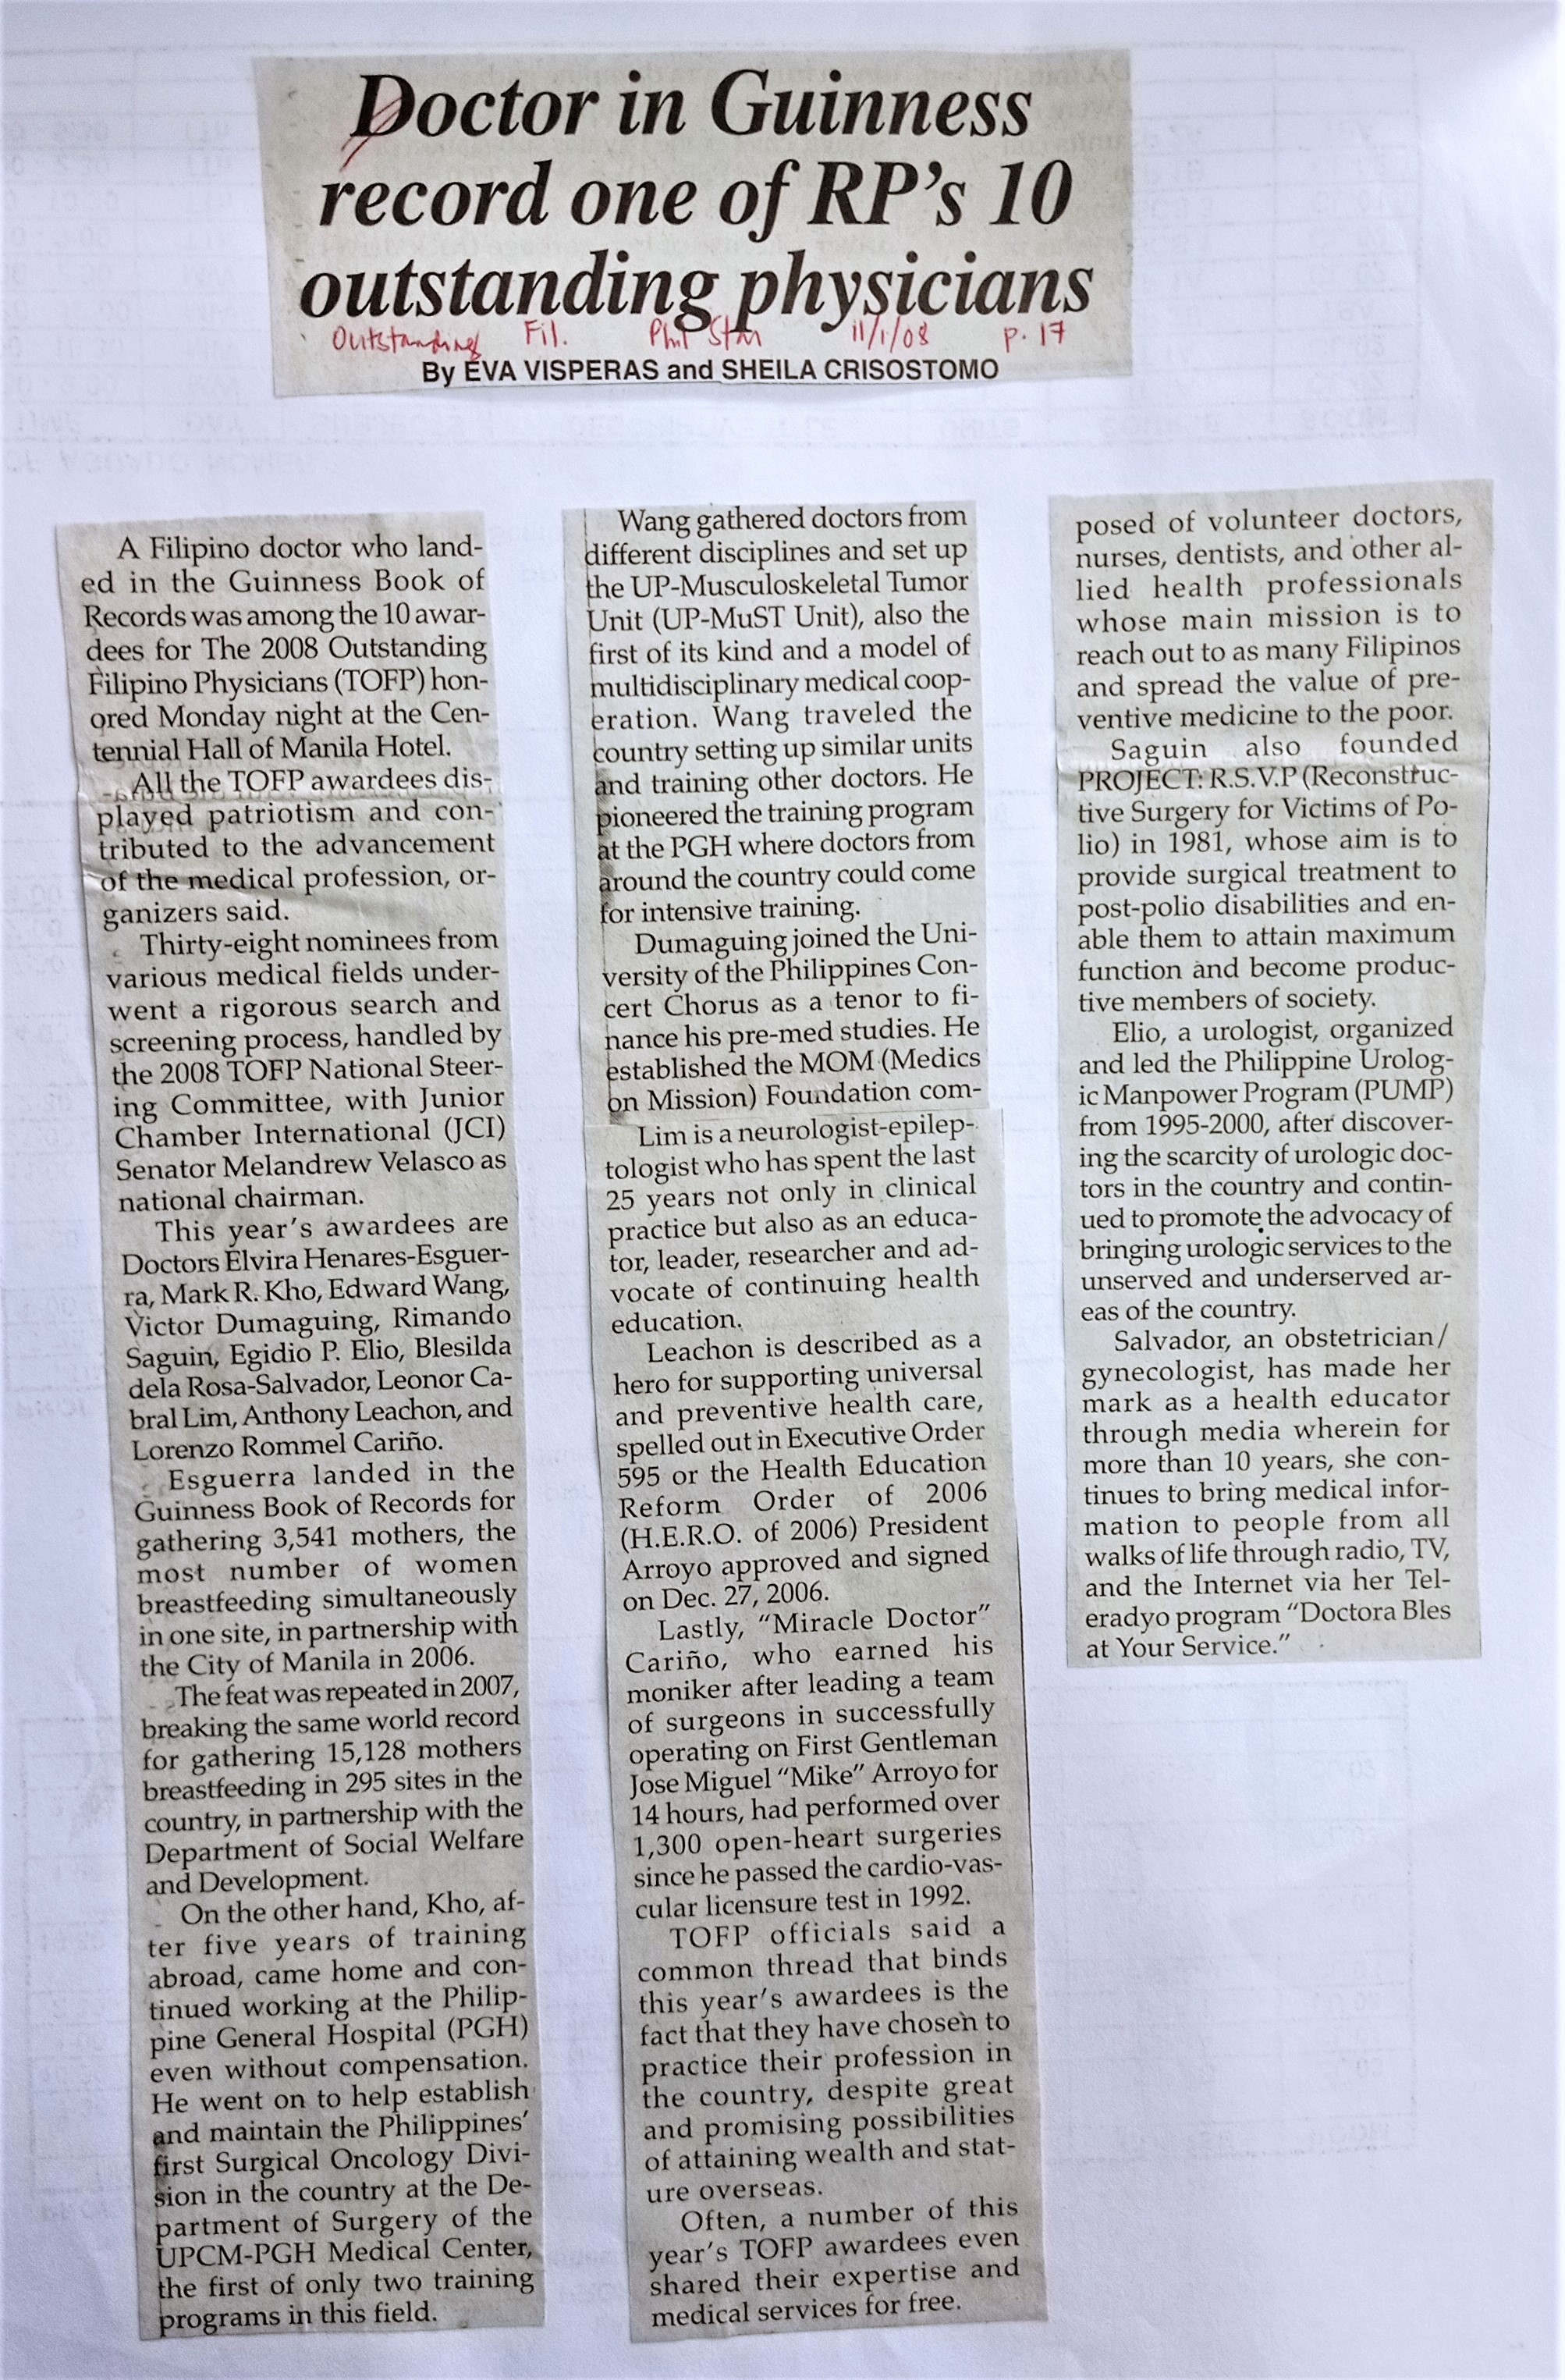 Doctor in Guinness
record one of RP's 10
outstanding physicians
Outstanding Fil. Phil Star 11/1/08 p. 17
By EVA VISPERAS and SHEILA CRISOSTOMO
A Filipino doctor who land-
ed in the Guinness Book of
Records was among the 10 awar-
dees for The 2008 Outstanding
Filipino Physicians (TOFP) hon-
ored Monday night at the Cen-
tennial Hall of Manila Hotel.
All the TOFP awardees dis-
played patriotism and con-
tributed to the advancement
of the medical profession, or-
ganizers said.
Thirty-eight nominees from
various medical fields under-
went a rigorous search and
screening process, handled by
the 2008 TOFP National Steer-
ing Committee, with Junior
Chamber International (JCI)
Senator Melandrew Velasco as
national chairman.
This year's awardees are
Doctors Elvira Henares-Esguer-
ra, Mark R. Kho, Edward Wang,
Victor Dumaguing, Rimando
Saguin, Egidio P. Elio, Blesilda
dela Rosa-Salvador, Leonor Ca-
bral Lim, Anthony Leachon, and
Lorenzo Rommel Cariño.
Esguerra landed in the
Guinness Book of Records for
gathering 3,541 mothers, the
most number of women
breastfeeding simultaneously
in one site, in partnership with
the City of Manila in 2006.
The feat was repeated in 2007,
breaking the same world record
for gathering 15,128 mothers
breastfeeding in 295 sites in the
country, in partnership with the
Department of Social Welfare
and Development.
On the other hand, Kho, af-
ter five years of training
abroad, came home and con-
tinued working at the Philip-
pine General Hospital (PGH)
even without compensation.
He went on to help establish
and maintain the Philippines'
first Surgical Oncology Divi-
sion in the country at the De-
partment of Surgery of the
UPCM-PGH Medical Center,
the first of only two training
programs in this field.
Wang gathered doctors from
different disciplines and set up
the UP-Musculoskeletal Tumor
Unit (UP-MuST Unit), also the
first of its kind and a model of
multidisciplinary medical coop-
eration. Wang traveled the
country setting up similar units
and training other doctors. He
pioneered the training program
at the PGH where doctors from
around the country could come
for intensive training.
Dumaguing joined the Uni-
versity of the Philippines Con-
cert Chorus as a tenor to fi-
nance his pre-med studies. He
established the MOM (Medics
on Mission) Foundation com-
Lim is a neurologist-epilep-
tologist who has spent the last
25 years not only in clinical
practice but also as an educa-
tor, leader, researcher and ad-
vocate of continuing health
education.
Leachon is described as a
hero for supporting universal
and preventive health care,
spelled out in Executive Order
595 or the Health Education
Reform Order of 2006
(H.E.R.O. of 2006) President
Arroyo approved and signed
on Dec. 27, 2006.
Lastly, "Miracle Doctor"
Cariño, who earned his
moniker after leading a team
of surgeons in successfully
operating on First Gentleman
Jose Miguel "Mike" Arroyo for
14 hours, had performed over
1,300 open-heart surgeries
since he passed the cardio-vas-
cular licensure test in 1992.
TOFP officials said a
common thread that binds
this year's awardees is the
fact that they have chosen to
practice their profession in
the country, despite great
and promising possibilities
of attaining wealth and stat-
ure overseas.
Often, a number of this
year's TOFP awardees even
shared their expertise and
medical services for free.
posed of volunteer doctors,
nurses, dentists, and other al-
lied health professionals
whose main mission is to
reach out to as many Filipinos
and spread the value of pre-
ventive medicine to the poor.
Saguin also founded
PROJECT: R.S.V.P (Reconstruc-
tive Surgery for Victims of Po-
lio) in 1981, whose aim is to
provide surgical treatment to
post-polio disabilities and en-
able them to attain maximum
function and become produc-
tive members of society.
Elio, a urologist, organized
and led the Philippine Urolog-
ic Manpower Program (PUMP)
from 1995-2000, after discover-
ing the scarcity of urologic doc-
tors in the country and contin-
ued to promote the advocacy of
bringing urologic services to the
unserved and underserved ar-
eas of the country.
Salvador, an obstetrician/
gynecologist, has made her
mark as a health educator
through media wherein for
more than 10 years, she con-
tinues to bring medical infor-
mation to people from all
walks of life through radio, TV,
and the Internet via her Tel-
eradyo program "Doctora Bles
at Your Service."